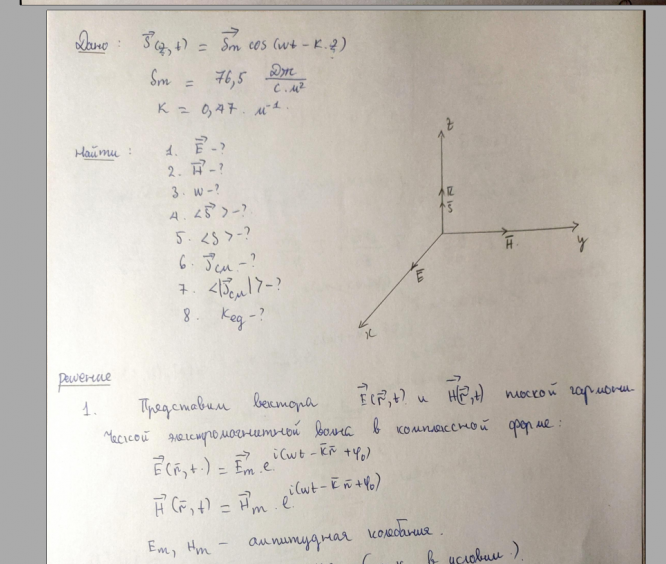 Дано: S⃗(z,t) = S⃗m cos(wt - k.z)
Sm = 76,5 Дж/с.м²
K = 0,47. м⁻¹.
Найти: 1. E⃗ -?
2. H⃗ -?
3. w -?
4. <S⃗> -?
5. <S> -?
6. J⃗см -?
7. <|J⃗см|> -?
8. Kед -?
z
k̅
S̅
H̅
y
E̅
x
решение
1. Представим вектора E⃗(r̅,t) и H⃗(r̅,t) плоской гармони
ческой электромагнитной волна в комплексной форме:
E⃗(r̅,t.) = E⃗m.e^i(wt - k̅r̅ + φ₀)
H⃗(r̅,t) = H⃗m.e^i(wt - k̅r̅ + φ₀)
Em, Hm - амплитудная колебания.
в условии.)